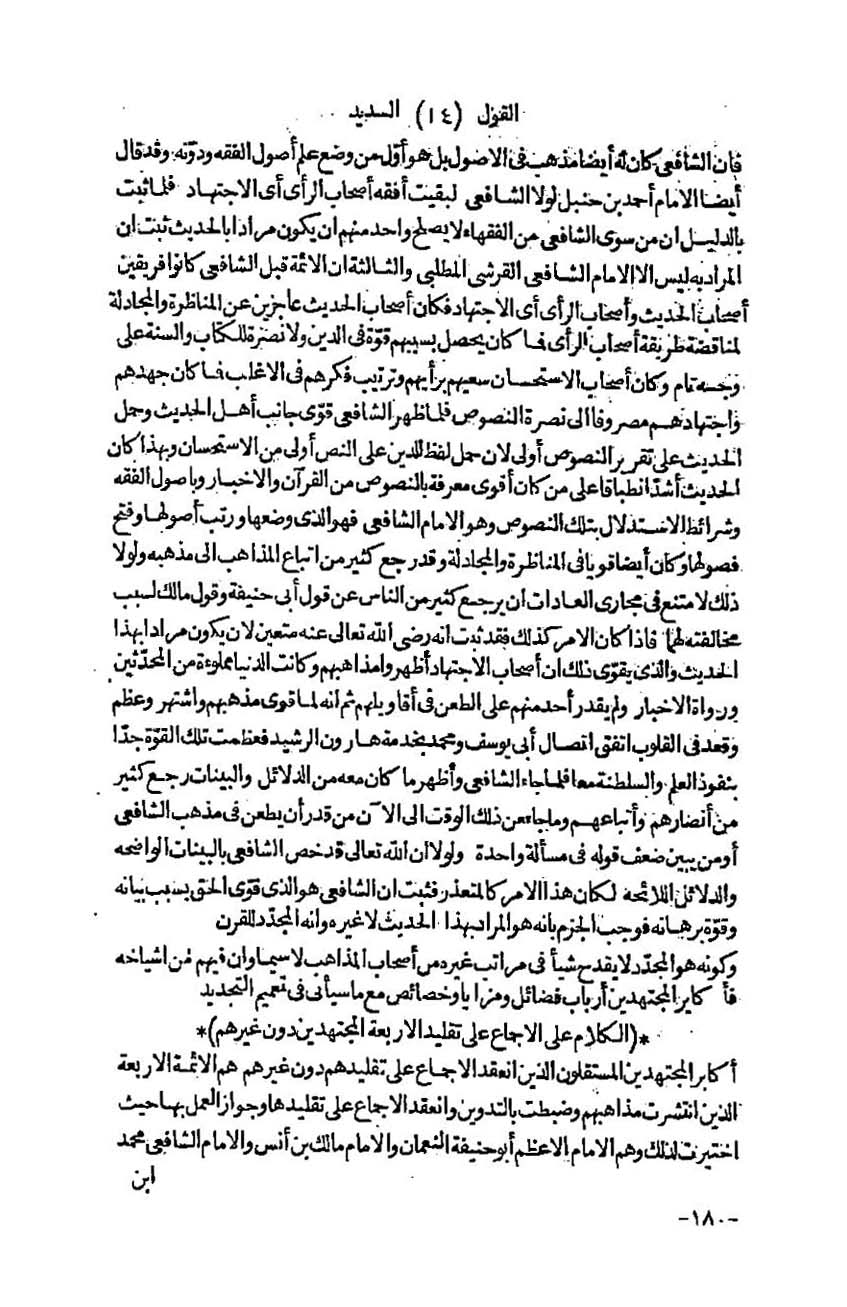 القول (١٤) السديد
فان الشافعي كان له أيضا مذهب فى الاصول بل هو أول من وضع علم أصول الفقه ودونه وقد قال
أيضا الامام أحمد بن حنبل لولا الشافعى لبقيت أفقه أصحاب الرأى أى الاجتهاد فلما ثبت
بالدليل ان من سوى الشافعى من الفقهاء لا يصلح واحد منهم ان يكون مرادا بالحديث ثبت ان
المراد به ليس الا الامام الشافعى القرشى المطلبى والثالثة ان الائمة قبل الشافعى كانوا فريقين
أصحاب الحديث وأصحاب الرأى أى الاجتهاد فكان أصحاب الحديث عاجزين عن المناظرة والمجادلة
لمناقضة طريقة أصحاب الرأى فما كان يحصل بسببهم قوّة فى الدين ولا نصرة للكتاب والسنة على
وجه تام وكان أصحاب الاستحسان سعيهم برأيهم وترتيب فكرهم فى الاغلب فما كان جهدهم
واجتهادهم مصروفا الى نصرة النصوص فلما ظهر الشافعى قوّى جانب أهل الحديث وحمل
الحديث على تقرير النصوص أولى لان حمل لفظ للدين على النص أولى من الاستحسان وبهذا كان
الحديث أشدّ انطباقا على من كان أقوى معرفة بالنصوص من القرآن والاخبار وباصول الفقه
وشرائط الاستدلال بتلك النصوص وهو الامام الشافعى فهو الذى وضعها ورتب أصولها وفتح
فصولها وكان أيضا قويا فى المناظرة والمجادلة وقد رجع كثير من اتباع المذاهب الى مذهبه ولولا
ذلك لامتنع فى مجارى العادات ان يرجع كثير من الناس عن قول أبى حنيفة وقول مالك لسبب
مخالفته لهما فاذا كان الامر كذلك فقد ثبت انه رضى الله تعالى عنه متعين لان يكون مرادا بهذا
الحديث والذى يقوّى ذلك ان أصحاب الاجتهاد أظهروا مذاهبهم وكانت الدنيا مملوءة من المحدّثين
ورواة الاخبار ولم يقدر أحد منهم على الطعن فى أقاويلهم ثم انه لما قوى مذهبهم واشتهر وعظم
وقعه فى القلوب اتفق اتصال أبى يوسف ومحمد بخدمة هارون الرشيد فعظمت تلك القوّة جدّا
بنفوذ العلم والسلطنة معا فلما جاء الشافعى وأظهر ما كان معه من الدلائل والبينات رجع كثير
من أنصارهم وأتباعهم وما جاء من ذلك الوقت الى الآن من قدر أن يطعن فى مذهب الشافعى
أو من يبين ضعف قوله فى مسألة واحدة ولولا ان الله تعالى قد خص الشافعى بالبينات الواضحه
والدلائل اللائحه لكان هذا الامر كالمتعذر فثبت ان الشافعى هو الذى قوّى الحق بسبب بيانه
وقوّة برهانه فوجب الجزم بانه هو المراد بهذا الحديث لا غيره وانه المجدّد للقرن
وكونه هو المجدّد لا يقدح شيأ فى مراتب غيره من أصحاب المذاهب لا سيما وان فيهم من اشياخه
فأ كابر المجتهدين أرباب فضائل ومزايا وخصائص مع ما سيأتى فى تعميم التجديد
*(الكلام على الاجماع على تقليد الاربعة المجتهدين دون غيرهم)*
أكابر المجتهدين المستقلون الذين انعقد الاجماع على تقليدهم دون غيرهم هم الائمة الاربعة
الذين انتشرت مذاهبهم وضبطت بالتدوين وانعقد الاجماع على تقليدها وجواز العمل بها حيث
اختيرت لذلك وهم الامام الاعظم أبو حنيفة النعمان والامام مالك بن أنس والامام الشافعى محمد
ابن
-١٨٠-